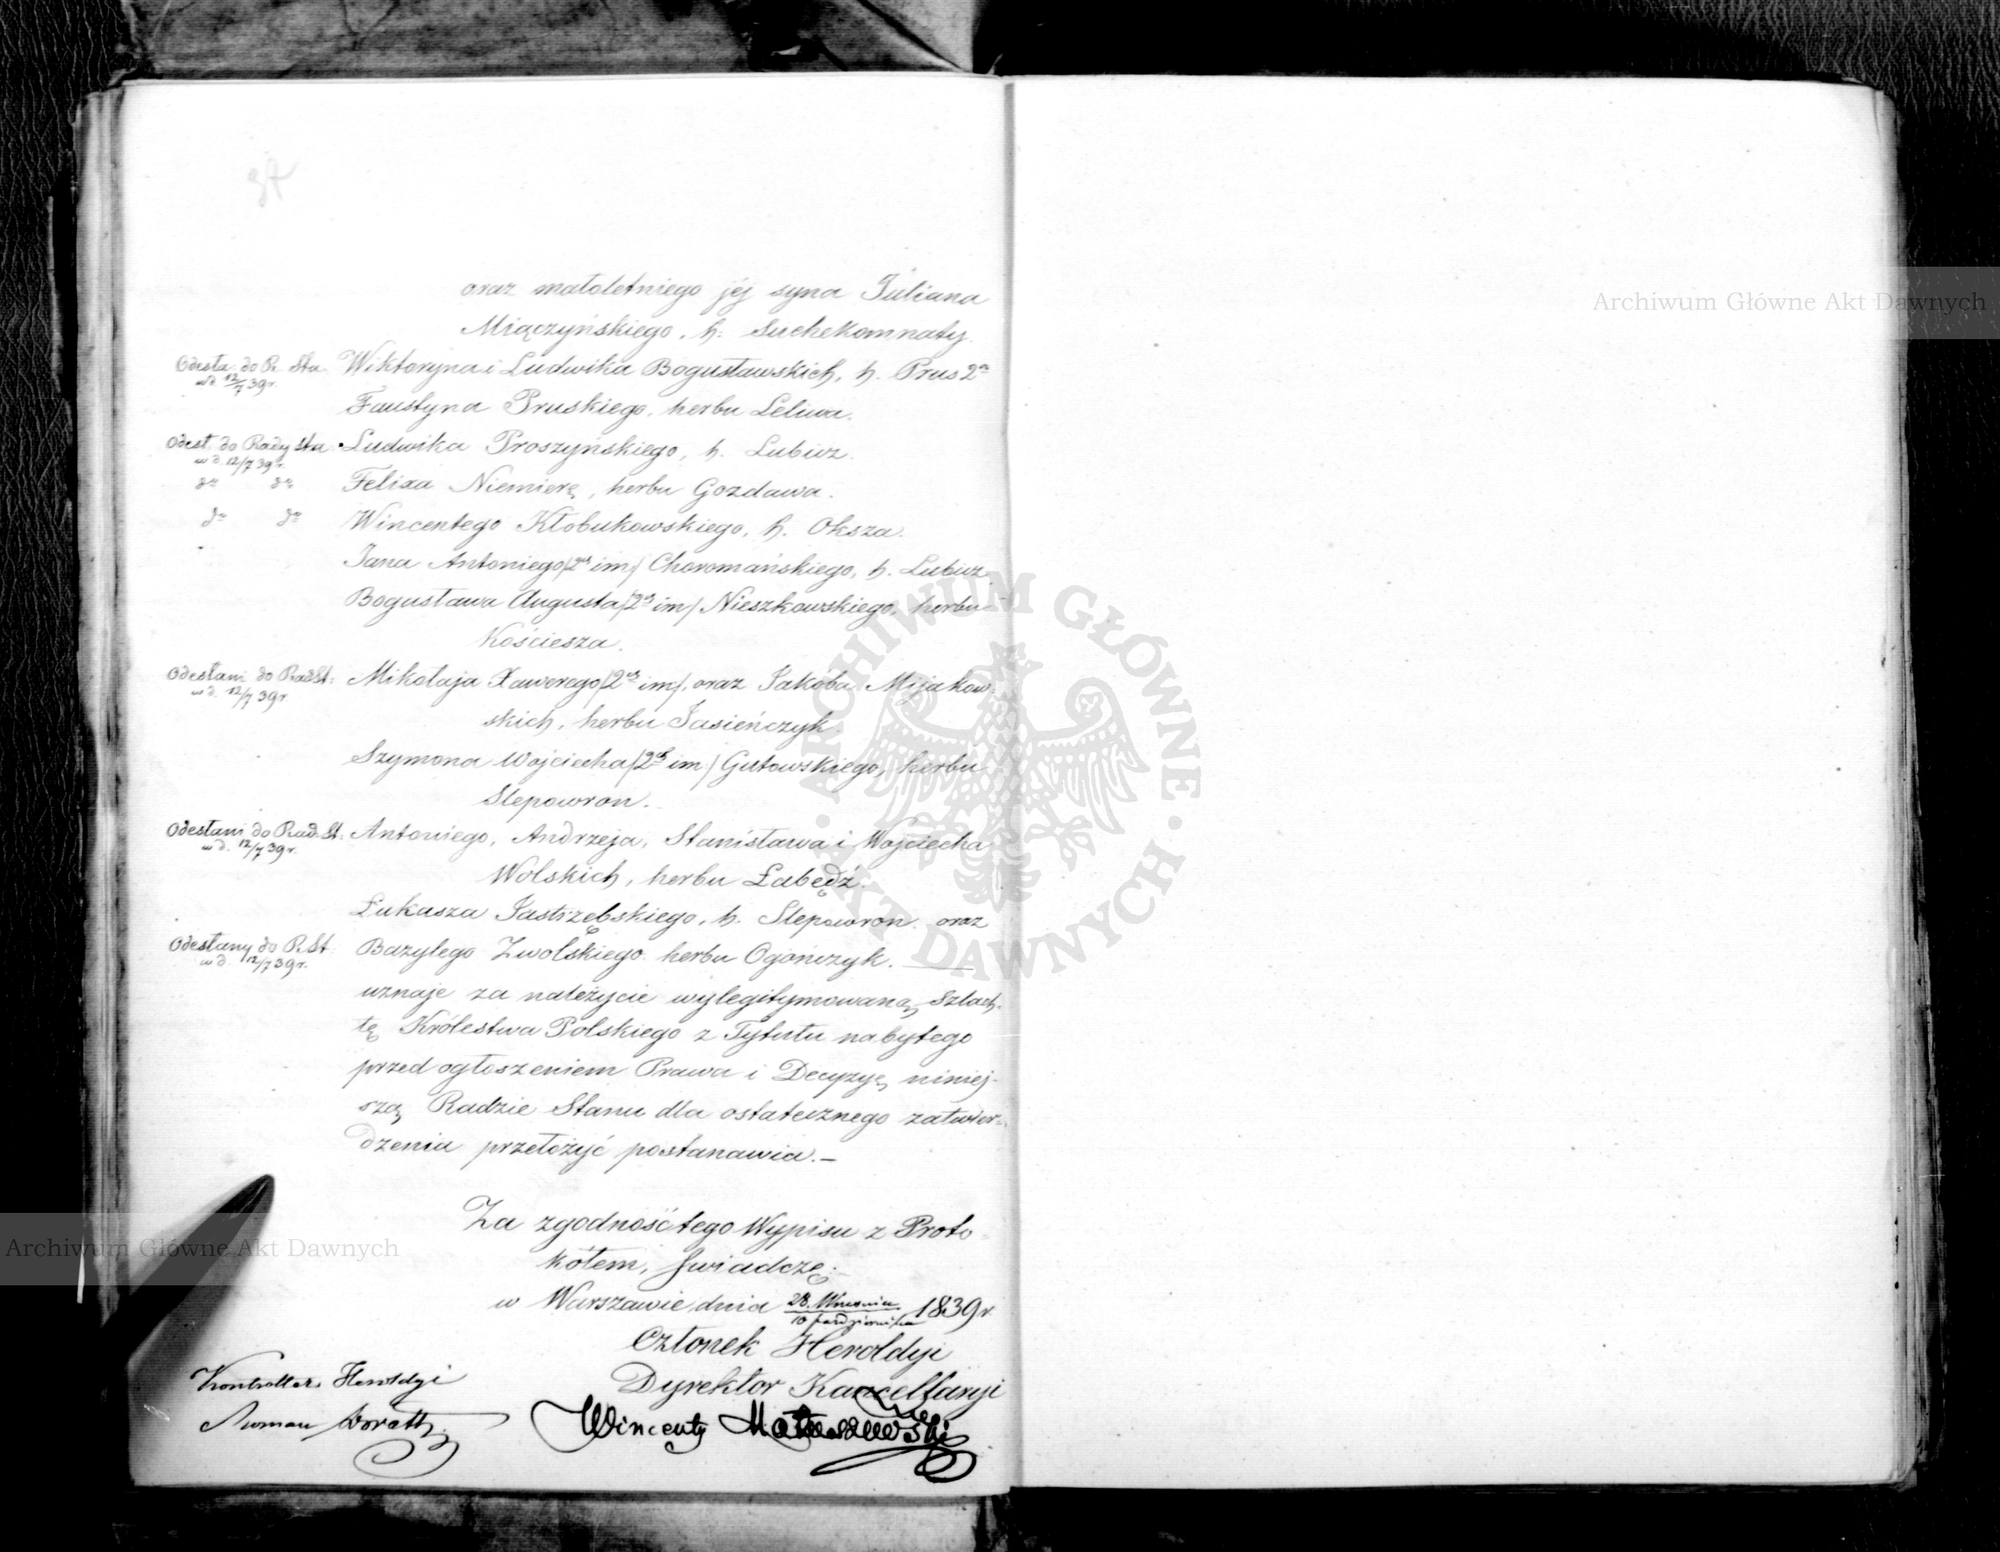 37
oraz małoletniego jéj syna Juliana
Miączyńskiego, h: Suchekomnaty.
Odesła. do R. Sta.
w d. 12/7 39 r.
Wiktoryna i Ludwika Bogusławskich, h. Prus 2º
Faustyna Pruskiego, herbu Leliwa.
Odesł. do Rady Sta.
w d. 12/7 39 r.
Ludwika Proszyńskiego, h. Lubicz.
dº dº
Felixa Niemierę, herbu Gozdawa.
dº dº
Wincentego Kłobukowskiego, h. Oksza.
Jana Antoniego /2ch im/ Choromańskiego, h. Lubicz.
Bogusława Augusta /2ch im/ Nieszkowskiego, herbu
Kościesza.
Odesłani do Rad. St:
w d. 12/7 39 r
Mikołaja Xawerego /2ch im/, oraz Jakóba Mijakow-
skich, herbu Jasieńczyk.
Szymona Wojciecha /2ch im/ Gutowskiego, herbu
Slepowron.
Odesłani do Rad. St:
w d. 12/7 39 r.
Antoniego, Andrzeja, Stanisława i Wojciecha
Wolskich, herbu Łabędź.
Łukasza Jastrzębskiego, h. Slepowron. oraz
Odesłany do R. St.
w d. 12/7 39 r.
Bazylego Zwolskiego herbu Ogończyk. ——
uznaje za należycie wylegitymowaną Szlach-
tę Królestwa Polskiego z Tytułu nabytego
przed ogłoszeniem Prawa i Decyzyę niniej-
szą Radzie Stanu dla ostatecznego zatwier-
dzenia przełożyć postanawia. —
Za zgodność tego Wypisu z Proto-
kółem, świadczę.—
w Warszawie dnia 28. Września / 10 Października 1839 r.
Członek Heroldyi
Dyrektor Kancellaryi
Kontroller Heroldyi
Wincenty Matuszewski
Roman
Archiwum Główne Akt Dawnych
Archiwum Główne Akt Dawnych
ARCHIWUM GŁÓWNE
AKT DAWNYCH